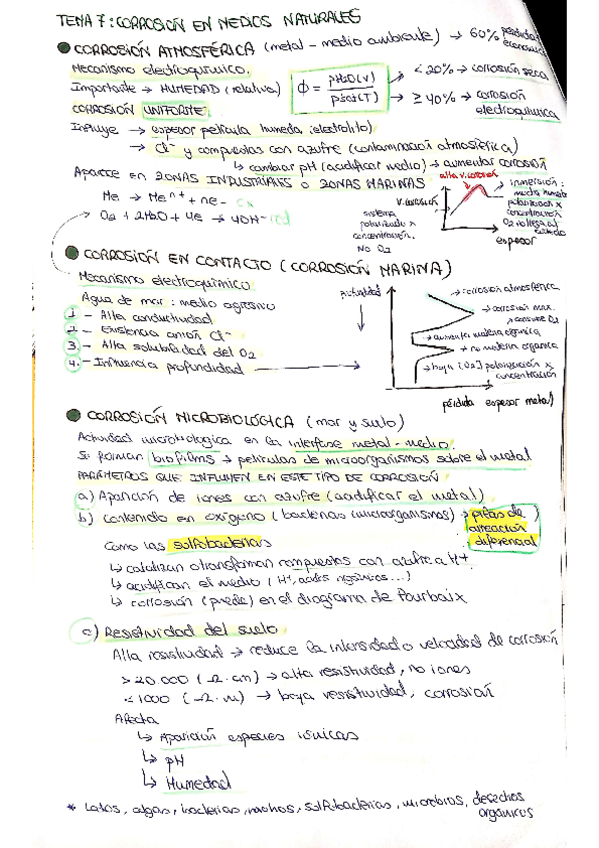 TEMA 7: CORROSIÓN EN MEDIOS NATURALES
CORROSIÓN ATMOSFÉRICA (metal - medio ambiente) → 60% pérdidas económicas
Mecanismo electroquímico.
Importante → HUMEDAD (relativa)
ϕ = pH2O(v) / psat(T)
< 20% → corrosión seca
≥ 40% → corrosión electroquímica
CORROSIÓN UNIFORME
Influye → espesor película humeda (electrolito)
→ Cl- y compuestos con azufre (contaminación atmosférica)
↳ cambiar pH (acidificar medio) → aumentar corrosión
Aparece en ZONAS INDUSTRIALES o ZONAS MARINAS
Me → Me n+ + ne-
O2 + 2H2O + 4e → 4OH- red
alta v. corrosión
v. corrosión
sistema polarizado x concentración. NO O2
inmersión: mucha humedad polarización x concentración O2 no llega al cátodo
espesor
CORROSIÓN EN CONTACTO (CORROSIÓN MARINA)
Mecanismo electroquímico
Agua de mar: medio agresivo
1 - Alta conductividad
2 - Existencia anión Cl-
3. - Alta solubilidad del O2
4. - Influencia profundidad
profundidad
→ corrosión atmosférica
→ corrosión max.
→ consume O2
→ aumenta materia orgánica
→ no materia orgánica
→ baja [O2] polarización x concentración
pérdida espesor metal
CORROSIÓN MICROBIOLÓGICA (mar y suelo)
Actividad microbiológica en la interfase metal-medio.
Si forman biofilms → películas de microorganismos sobre el metal
PARÁMETROS QUE INFLUYEN EN ESTE TIPO DE CORROSIÓN
a) Aparición de iones con azufre (acidificar el metal)
b) Contenido en oxígeno (bacterias (microorganismos) → pilas de aireación diferencial
Como las sulfobacterias
↳ catalizan o transforman compuestos con azufre a H+
↳ acidifican el medio (H+, acidos orgánicos...)
↳ corrosión (predic) en el diagrama de Pourbaix
c) Resistividad del suelo
Alta resistividad → reduce la intensidad o velocidad de corrosión
> 20.000 (Ω·cm) → alta resistividad, no iones
< 1000 (Ω·m) → baja resistividad, corrosión
Afecta
↳ Aparición especies iónicas
↳ pH
↳ Humedad
* Lodos, algas, bacterias, mohos, sulfobacterias, microbios, desechos orgánicos